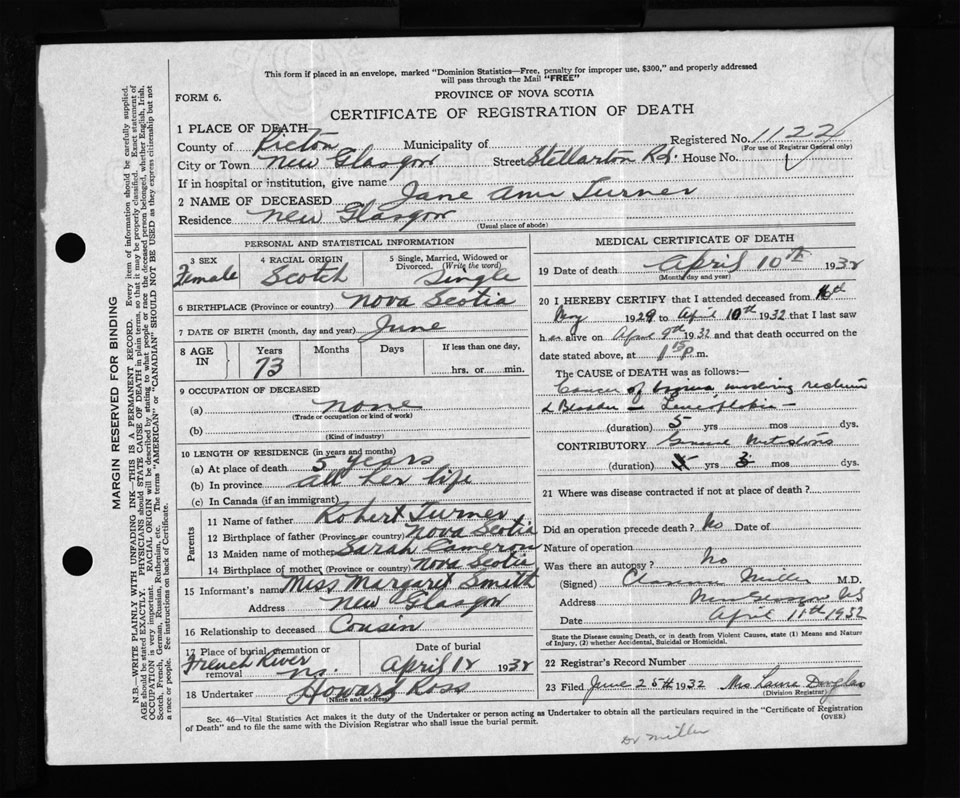 This form if placed in an envelope, marked "Dominion Statistics—Free, penalty for improper use, $300," and properly addressed
will pass through the Mail "FREE"
FORM 6.
PROVINCE OF NOVA SCOTIA
CERTIFICATE OF REGISTRATION OF DEATH
1 PLACE OF DEATH
Registered No. 1122
(For use of Registrar General only)
County of Picton Municipality of
City or Town New Glasgow Street Stellarton Rd. House No.
If in hospital or institution, give name
2 NAME OF DECEASED Jane Ann Turner
Residence New Glasgow
(Usual place of abode)
PERSONAL AND STATISTICAL INFORMATION
3 SEX Female
4 RACIAL ORIGIN Scotch
5 Single, Married, Widowed or Divorced. (Write the word) Single
6 BIRTHPLACE (Province or country) Nova Scotia
7 DATE OF BIRTH (month, day and year) June
8 AGE IN Years 73 Months Days If less than one day, hrs. or min.
9 OCCUPATION OF DECEASED
(a) none
(Trade or occupation or kind of work)
(b)
(Kind of industry)
10 LENGTH OF RESIDENCE (in years and months)
(a) At place of death 5 years
(b) In province all her life
(c) In Canada (if an immigrant)
Parents
11 Name of father Robert Turner
12 Birthplace of father (Province or country) Nova Scotia
13 Maiden name of mother Sarah Cameron
14 Birthplace of mother (Province or country) Nova Scotia
15 Informant's name Miss Margaret Smith
Address New Glasgow
16 Relationship to deceased Cousin
17 Place of burial, cremation or removal French River N.S.
Date of burial April 12 1932
18 Undertaker Howard Ross
(Name and address)
MEDICAL CERTIFICATE OF DEATH
19 Date of death April 10th 1932
(Month, day and year)
20 I HEREBY CERTIFY that I attended deceased from
1929 to April 10th 1932 that I last saw
h alive on April 9th 1932 and that death occurred on the
date stated above, at p.m.
The CAUSE of DEATH was as follows:—
Cancer of Vagina involving rectum
& Bladder —
(duration) 5 yrs mos dys.
CONTRIBUTORY
(duration) yrs 3 mos dys.
21 Where was disease contracted if not at place of death?
Did an operation precede death? No Date of
Nature of operation
Was there an autopsy? No
(Signed) Clarence Miller M.D.
Address New Glasgow, N.S
Date April 11th 1932
State the Disease causing Death, or in death from Violent Causes, state (1) Means and Nature
of Injury, (2) whether Accidental, Suicidal or Homicidal.
22 Registrar's Record Number
23 Filed June 25th 1932 Mrs Laura Douglas
(Division Registrar)
Sec. 46—Vital Statistics Act makes it the duty of the Undertaker or person acting as Undertaker to obtain all the particulars required in the "Certificate of Registration
of Death" and to file the same with the Division Registrar who shall issue the burial permit.
(OVER)
Dr Miller
MARGIN RESERVED FOR BINDING
N.B.—WRITE PLAINLY WITH UNFADING INK—THIS IS A PERMANENT RECORD. Every item of information should be carefully supplied.
AGE should be stated EXACTLY. PHYSICIANS should STATE CAUSE OF DEATH in plain terms, so that it may be properly classified. Exact statement of
OCCUPATION is very important. RACIAL ORIGIN will be described by stating to what people or race the deceased person belonged, whether English, Irish,
Scotch, French, German, Russian, Ruthenian, etc. The terms "AMERICAN" or "CANADIAN" SHOULD NOT BE USED as they express citizenship but not
a race or people. See instructions on back of Certificate.